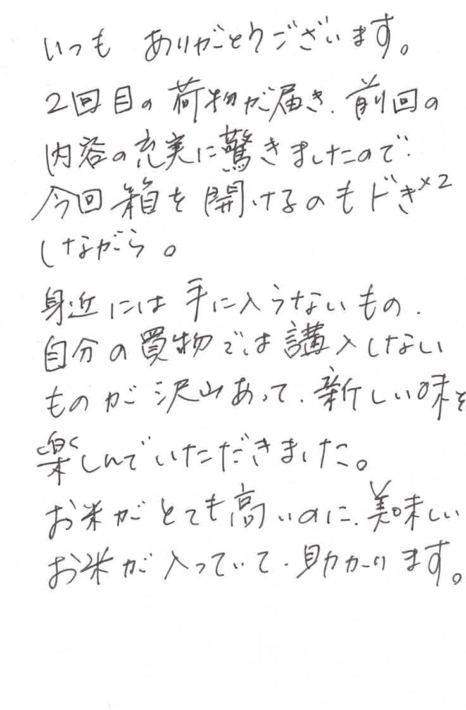 いつも ありがとうございます。
2回目の荷物が届き、前回の
内容の充実に驚きましたので、
今回箱を開けるのもドキ×2
しながら。
身近には手に入らないもの、
自分の買物では講入しない
ものが沢山あって、新しい味を
楽しんでいただきました。
お米がとても高いのに、美味しい
お米が入っていて、助かります。